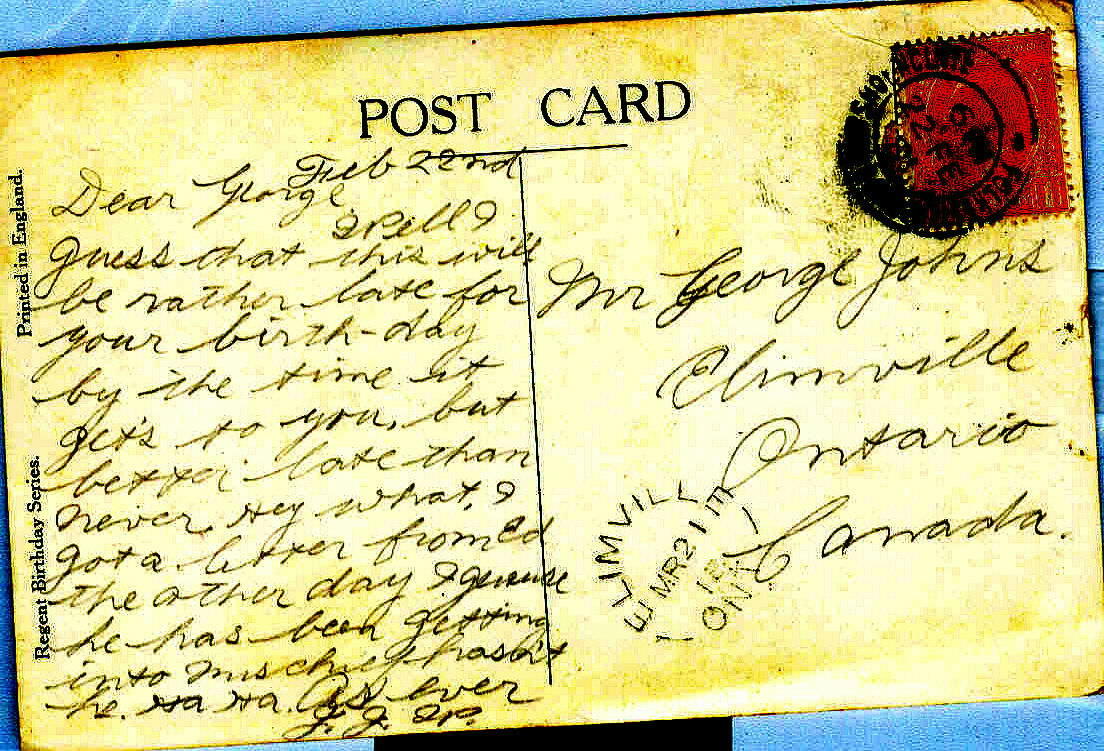 POST CARD
Printed in England.
Regent Birthday Series.
Feb 22nd
Dear George
Well I
guess that this will
be rather late for
your birth-day
by the time it
gets to you, but
better late than
never. Hey what, I
got a letter from Ed
the other day I guess
he has been getting
into mischief hasn't
he. Ha Ha. As ever
Mr George Johns
Elimville
Ontario
Canada.
ELIMVILLE
MR 21
ONT